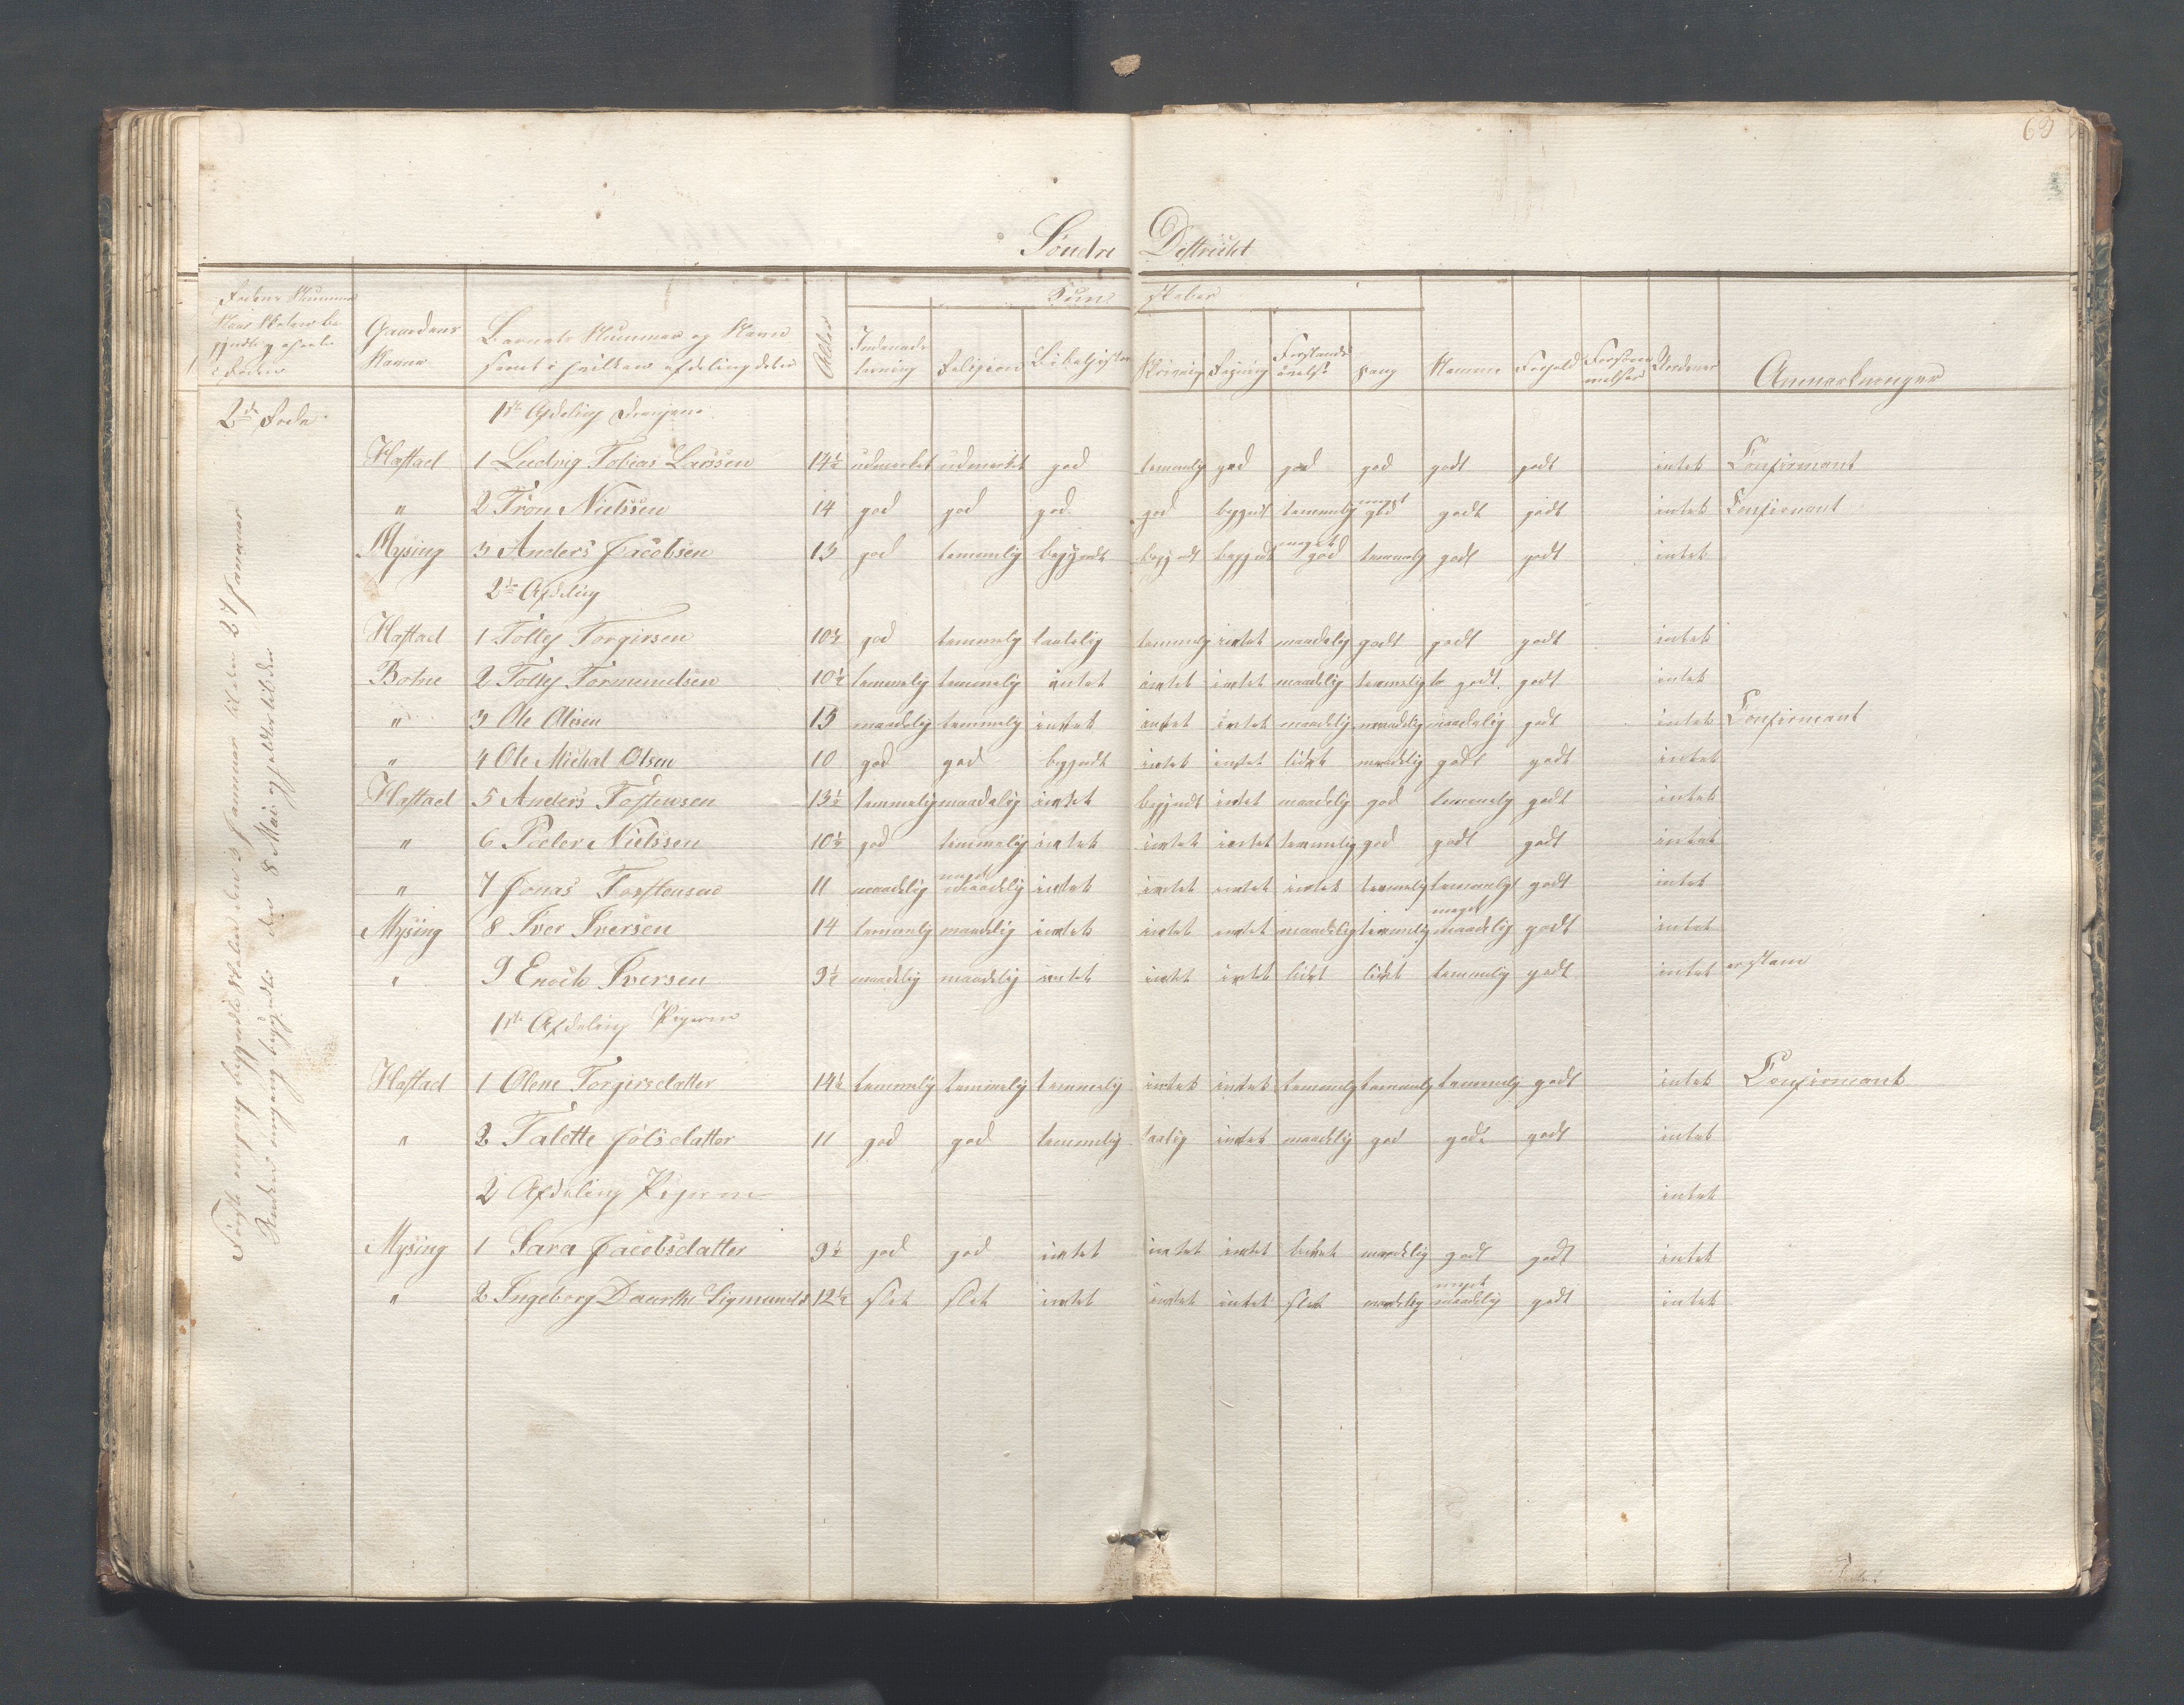 63
Söndre Districkt
Kundskaber
Rodens Nummer
Naar Skolen be-
gyndte og endte
i Roden
Gaardens
Navne
Barnets Nummer og Navn
samt i hvilken afdeling det er
Alder
Indenads
læsning
Religion
Bibelhistor
Skrivning
Regning
Forstands
övelse
sang
Nemme
Forhold
Forsöm
melser
Anmærkninger
2den Rode
1ste Afdeling Drengene
Hastad 1 Ludvig Tobias Larssen 14½ udmerket udmerket god temmelig god god god godt godt intet Confirmant
" 2 Tron Nielssen 14 god god god god begyndt temmelig meget god godt godt intet Confirmant
Mysing 3 Anders Jacobsen 13 god temmelig begyndt begyndt begyndt meget god temmelig godt godt intet
2den Afdeling
Hastad 1 Tolley Torgirsen 10½ god temmelig taalelig temmelig intet maadelig godt godt godt intet
Botne 2 Tolley Tormundsen 10½ temmelig temmelig intet intet intet maadelig temmelig godt godt intet
" 3 Ole Olesen 13 maadelig temmelig intet intet intet maadelig maadelig maadelig godt intet Confirmant
" 4 Ole Michal Olsen 10 god god begyndt intet intet lidet maadelig godt godt intet
Hastad 5 Anders Tostensen 13½ temmelig maadelig intet begyndt intet maadelig god temmelig godt intet
" 6 Peder Nielssen 10½ god temmelig intet intet intet temmelig god godt godt intet
" 7 Jonas Torstensen 11 maadelig meget maadelig intet intet intet intet temmelig temmelig godt intet
Mysing 8 Iver Iversen 14 temmelig maadelig intet intet intet maadelig temmelig meget maadelig godt intet
" 9 Enoch Iversen 9½ maadelig maadelig intet intet intet lidet lidet temmelig godt intet er stam
1ste Afdeling Pigerne
Hastad 1 Olene Torgirsdatter 14½ temmelig temmelig temmelig intet intet temmelig temmelig temmelig godt intet Confirmant
" 2 Talette Jolsdatter 11 god god temmelig intet maadelig god godt godt intet
2 Afdeling Pigerne intet
Mysing 1 Sara Jacobsdatter 9½ god god intet intet intet lidet maadelig godt godt intet
" 2 Ingeborg Daarthe Sigmunds 12½ slet slet intet intet intet slet maadelig meget maadelig godt intet
Förste omgang begyndte Skolen den 3 Januar til den 27 Januar
Anden omgang begyndte den 8 Mai og holder til den